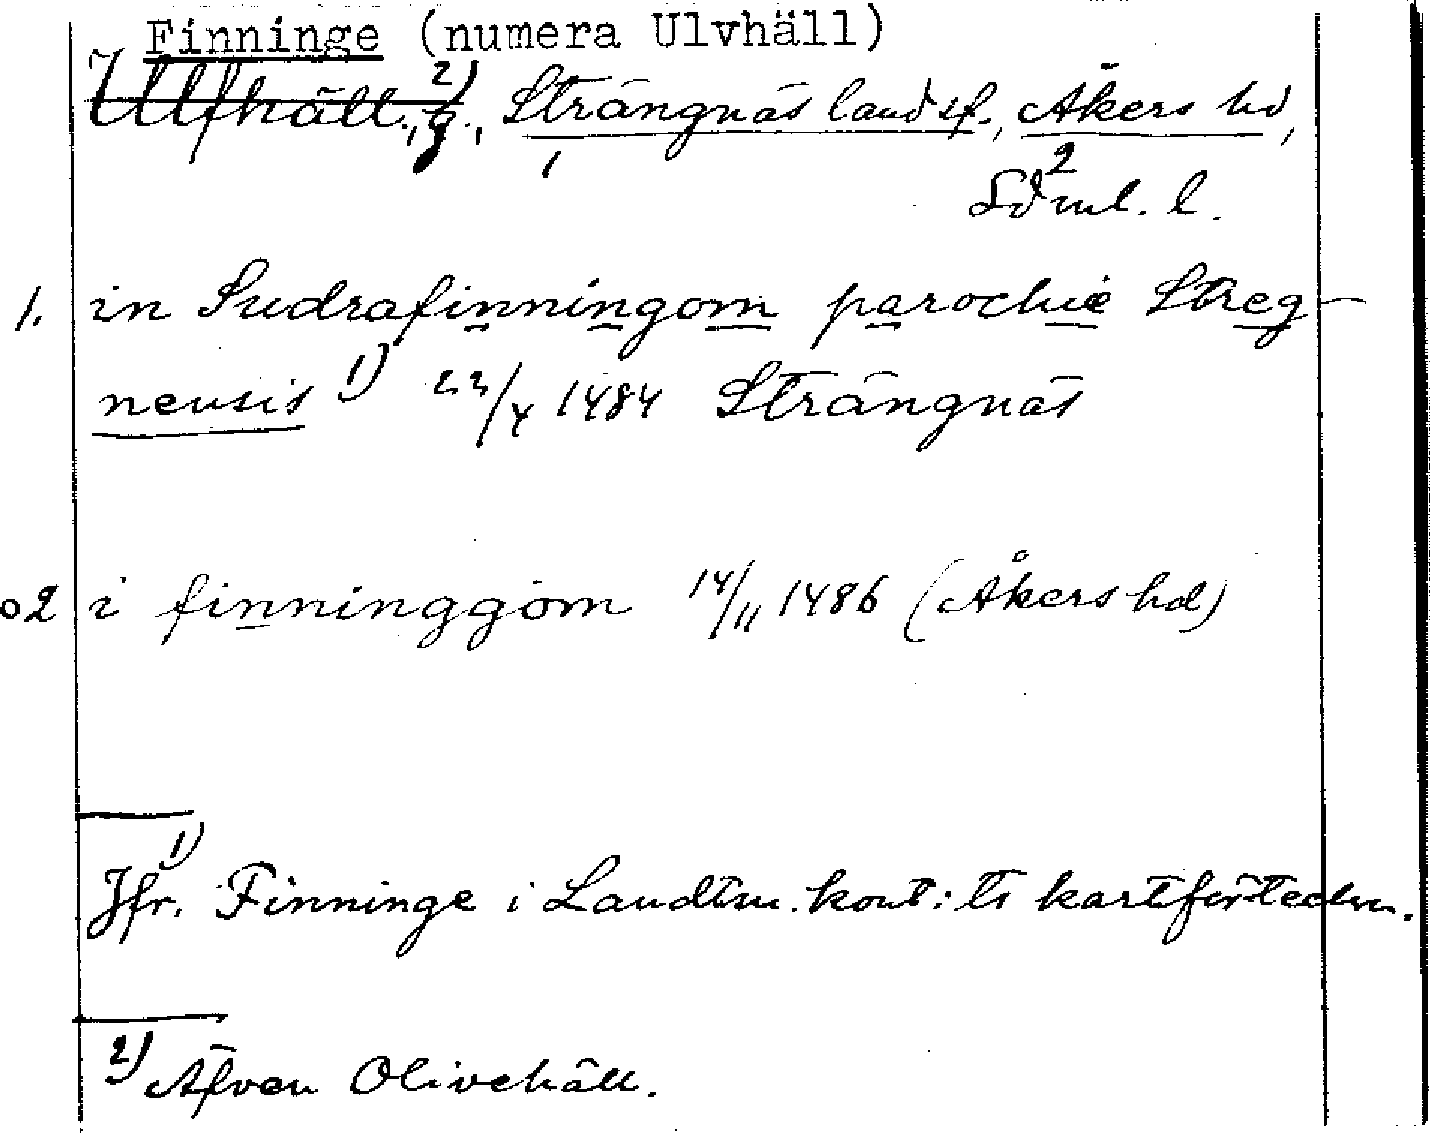 Finninge (numera Ulvhäll)
Ulfhäll, 2) g., Strängnäs landsf., Åkers hd,
1 2
Södml. l.
1. in Sudrafinningom parochie Streg-
nensis 1) 22/4 1484 Strängnäs
o2 i finninggom 14/11 1486 (Åkers hd)
1)
Jfr. Finninge i Landtm. kont:ts kartförteckn.
2) Äfven Olivehäll.